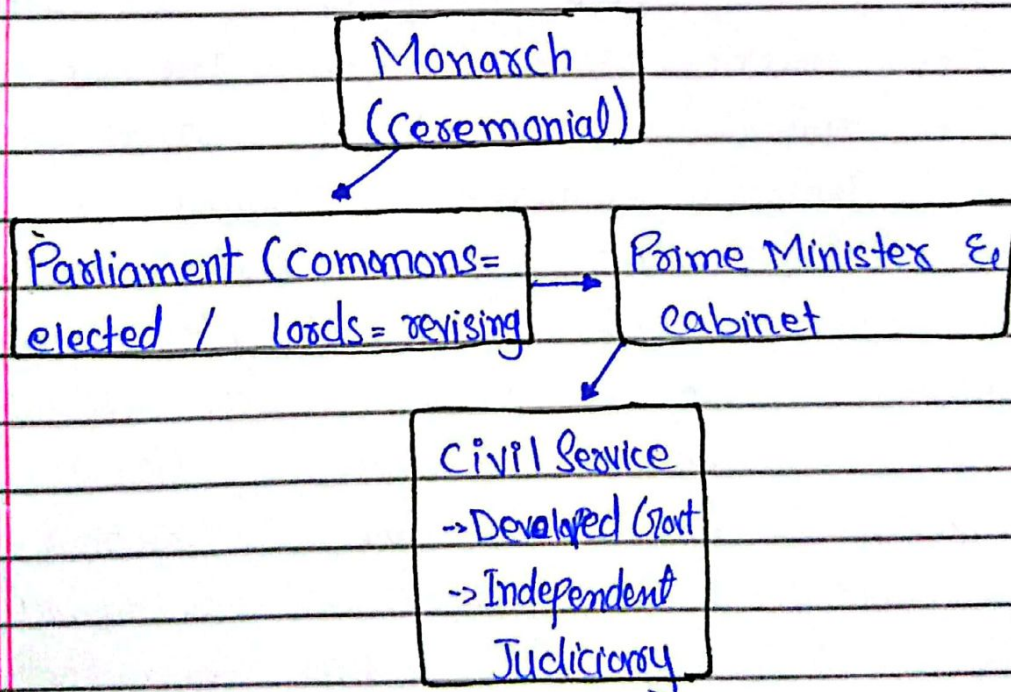 Monarch
(ceremonial)
Parliament (commons=
elected / lords = revising
Prime Minister &
cabinet
Civil Service
-> Developed Govt
-> Independent
Judiciary